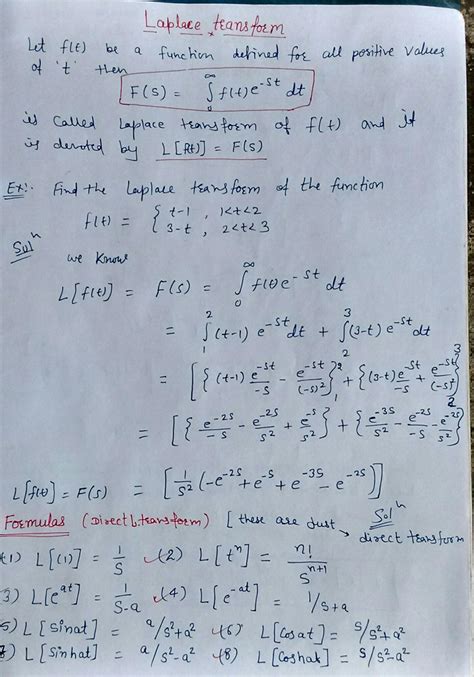 Laplace transform
Let f(t) be a function defined for all positive values
of 't' then
F(S) = ∫₀^∞ f(t) e^-st dt
is called Laplace transform of f(t) and it
is denoted by L[f(t)] = F(s)
Ex:- Find the Laplace transform of the function
f(t) = { t-1 , 1<t<2
3-t , 2<t<3
Solⁿ
we know
L[f(t)] = F(s) = ∫₀^∞ f(t) e^-st dt
= ∫₁² (t-1) e^-st dt + ∫₂³ (3-t) e^-st dt
= [{(t-1) e^-st/-s - e^-st/(-s)²}₁² + {(3-t) e^-st/-s + e^-st/(-s)²}₂³
= [{e^-2s/-s - e^-2s/s² + e^-s/s²} + {e^-3s/s² - e^-2s/-s - e^-2s/s²}
L[f(t)] = F(s) = [1/s² (-e^-2s + e^-s + e^-3s - e^-2s)]
Solⁿ
Formulas (Direct L.transform) [these are just direct transform
(1) L[(1)] = 1/S (2) L[tⁿ] = n!/s^n+1
3) L[e^at] = 1/S-a (4) L[e^-at] = 1/s+a
5) L[Sinat] = a/s²+a² (6) L[Cosat] = s/s²+a²
7) L[Sinhat] = a/s²-a² (8) L[Coshat] = s/s²-a²